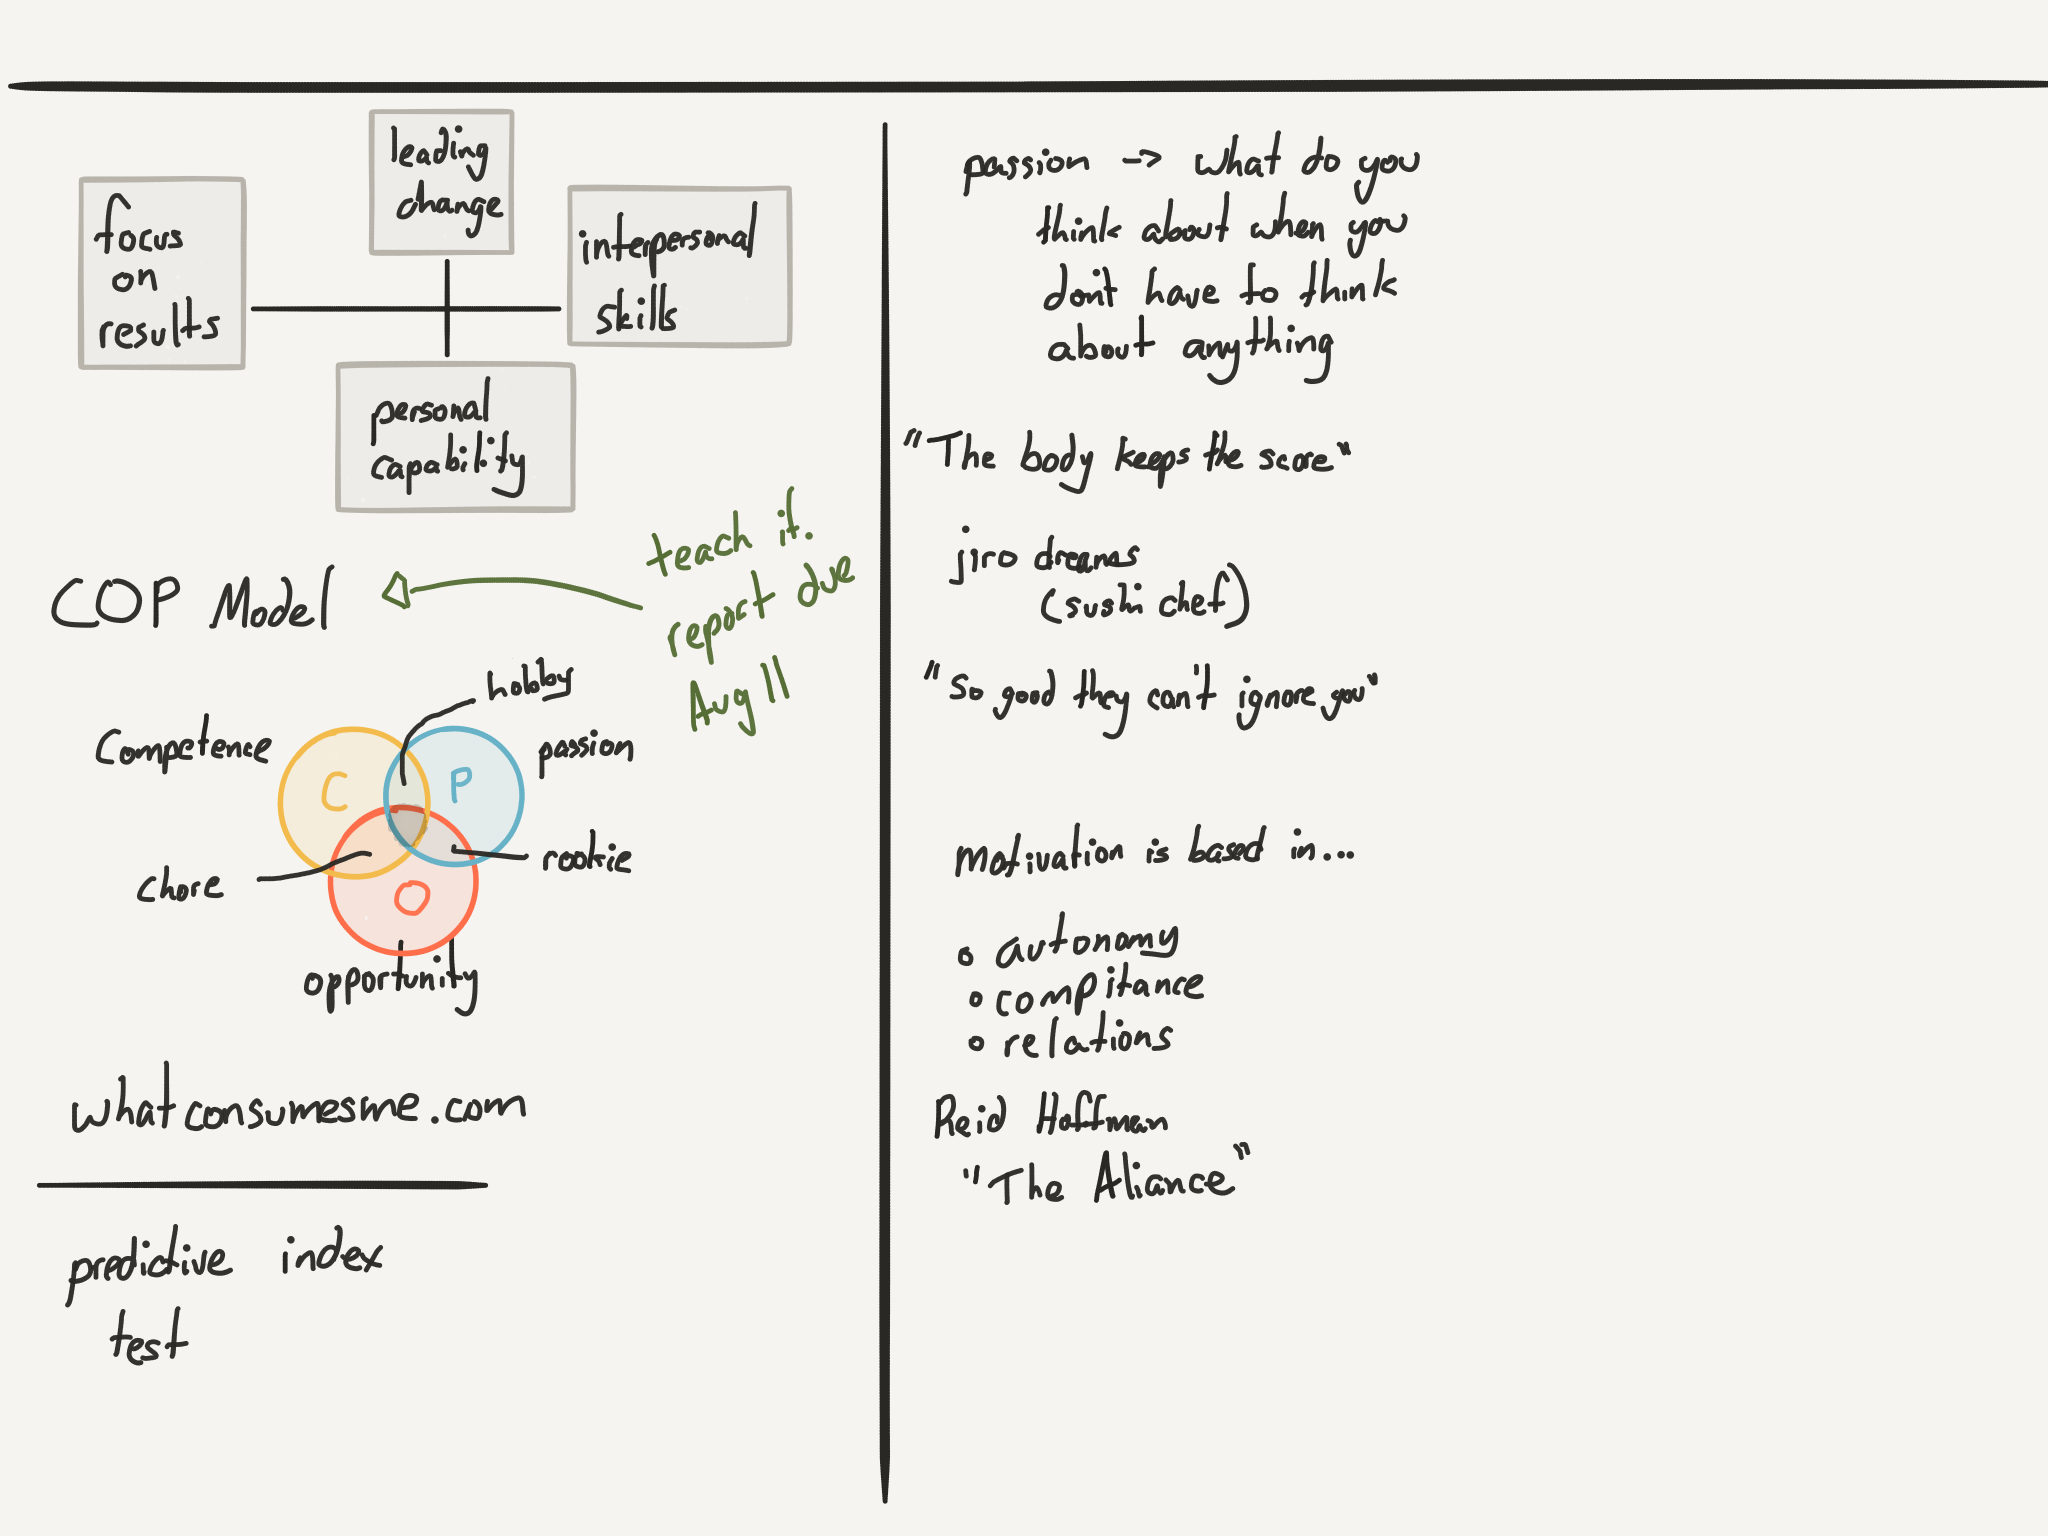 leading
change
focus
on
results
interpersonal
skills
personal
capability
COP Model
teach it.
report due
Aug 11
hobby
Competence
passion
C
P
chore
rookie
O
opportunity
whatconsumesme.com
predictive index
test
passion -> what do you
think about when you
don't have to think
about anything
"The body keeps the score"
jiro dreams
(sushi chef)
"So good they can't ignore you"
motivation is based in...
• autonomy
• compitance
• relations
Reid Hoffman
"The Aliance"